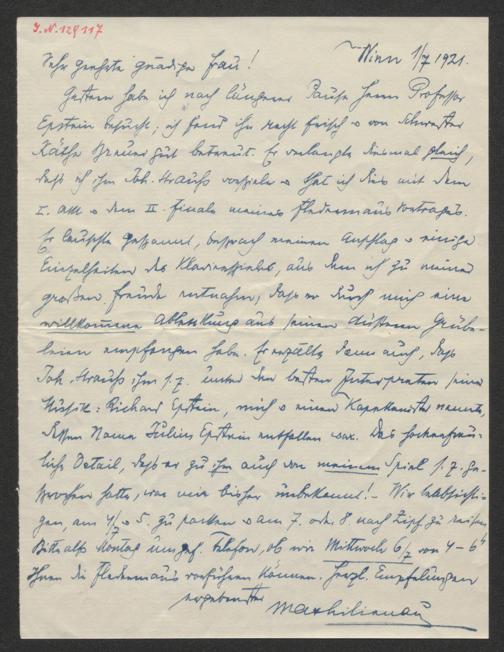 I.N. 129117
Wien 1/7 1921.
Sehr geehrte gnädige Frau!
Gestern habe ich nach längerer Pause Herrn Professor
Epstein besucht; ich fand ihn recht frisch & von Schwester
Käthe Breuer gut betreut. Er verlangte diesmal gleich,
daß ich ihm Joh. Strauß vorspiele & that ich dies mit dem
I. Akt & dem II. Finale meines Fledermausvortrages.
Er lauschte gespannt, besprach meinen Anschlag & einige
Einzelheiten des Klavierspieles, aus dem ich zu meiner
großen Freude entnahm, daß er durch mich eine
willkommene Ablenkung aus seinen düsteren Grübe-
leien empfangen habe. Er erzählte dann auch, daß
Joh. Strauß ihm s. Z. unter den besten Interpreten seiner
Musik: Richard Epstein, mich & einen nannte,
dessen Name Julius Epstein entfallen war. Das hocherfreu-
liche Detail, daß er zu ihm auch von meinem Spiel s. Z. ge-
sprochen hatte, war mir bisher unbekannt! - Wir beabsichti-
gen, am 4/7 & 5. zu packen & am 7. oder 8 nach Zipf zu reisen
Bitte alfo Montag um gef. Telefon, ob wir Mittwoch 6/7 von 4-6h
Ihnen die Fledermaus vorführen können. Herzl. Empfehlungen
ergebenster